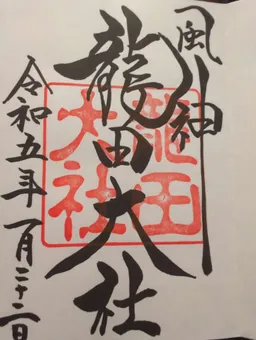 風神
龍田大社
龍田大社
令和五年一月二十二日